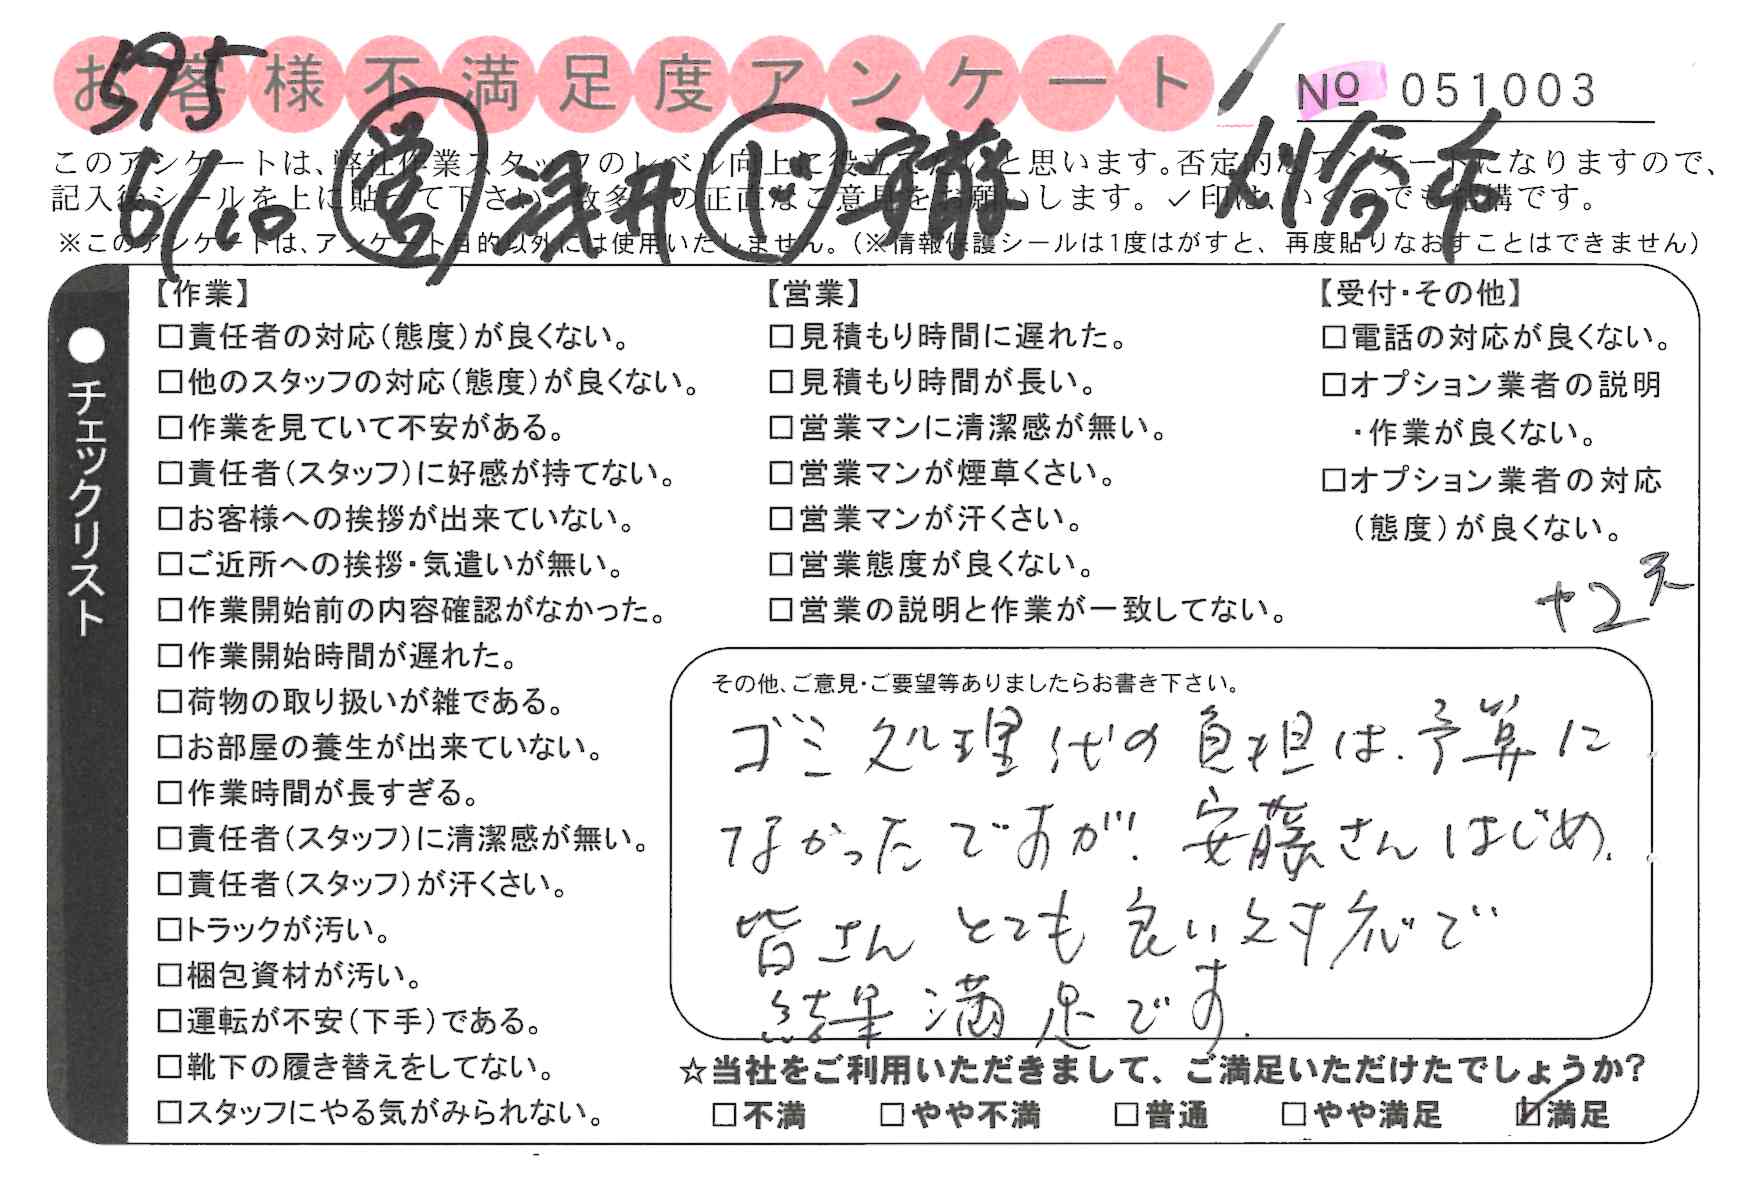 お客様不満足度アンケート
№ 051003
575
6/10 営 浅井 ド 安藤 刈谷市
このアンケートは、弊社作業スタッフのレベル向上に役立てたいと思います。否定的なアンケートになりますので、
記入後シールを上に貼って下さい。数多くの正直なご意見をお願いします。✓印は、いくつでも結構です。
※このアンケートは、アンケート目的以外には使用いたしません。(※情報保護シールは1度はがすと、再度貼りなおすことはできません)
●チェックリスト
【作業】
□責任者の対応(態度)が良くない。
□他のスタッフの対応(態度)が良くない。
□作業を見ていて不安がある。
□責任者(スタッフ)に好感が持てない。
□お客様への挨拶が出来ていない。
□ご近所への挨拶・気遣いが無い。
□作業開始前の内容確認がなかった。
□作業開始時間が遅れた。
□荷物の取り扱いが雑である。
□お部屋の養生が出来ていない。
□作業時間が長すぎる。
□責任者(スタッフ)に清潔感が無い。
□責任者(スタッフ)が汗くさい。
□トラックが汚い。
□梱包資材が汚い。
□運転が不安(下手)である。
□靴下の履き替えをしてない。
□スタッフにやる気がみられない。
【営業】
□見積もり時間に遅れた。
□見積もり時間が長い。
□営業マンに清潔感が無い。
□営業マンが煙草くさい。
□営業マンが汗くさい。
□営業態度が良くない。
□営業の説明と作業が一致してない。
【受付・その他】
□電話の対応が良くない。
□オプション業者の説明
・作業が良くない。
□オプション業者の対応
(態度)が良くない。
+2
その他、ご意見・ご要望等ありましたらお書き下さい。
ゴミ処理代の負担は、予算に
なかったですが! 安藤さんはじめ、
皆さん とても良い対応で
結果 満足です。
☆当社をご利用いただきまして、ご満足いただけたでしょうか?
□不満 □やや不満 □普通 □やや満足 ☑満足